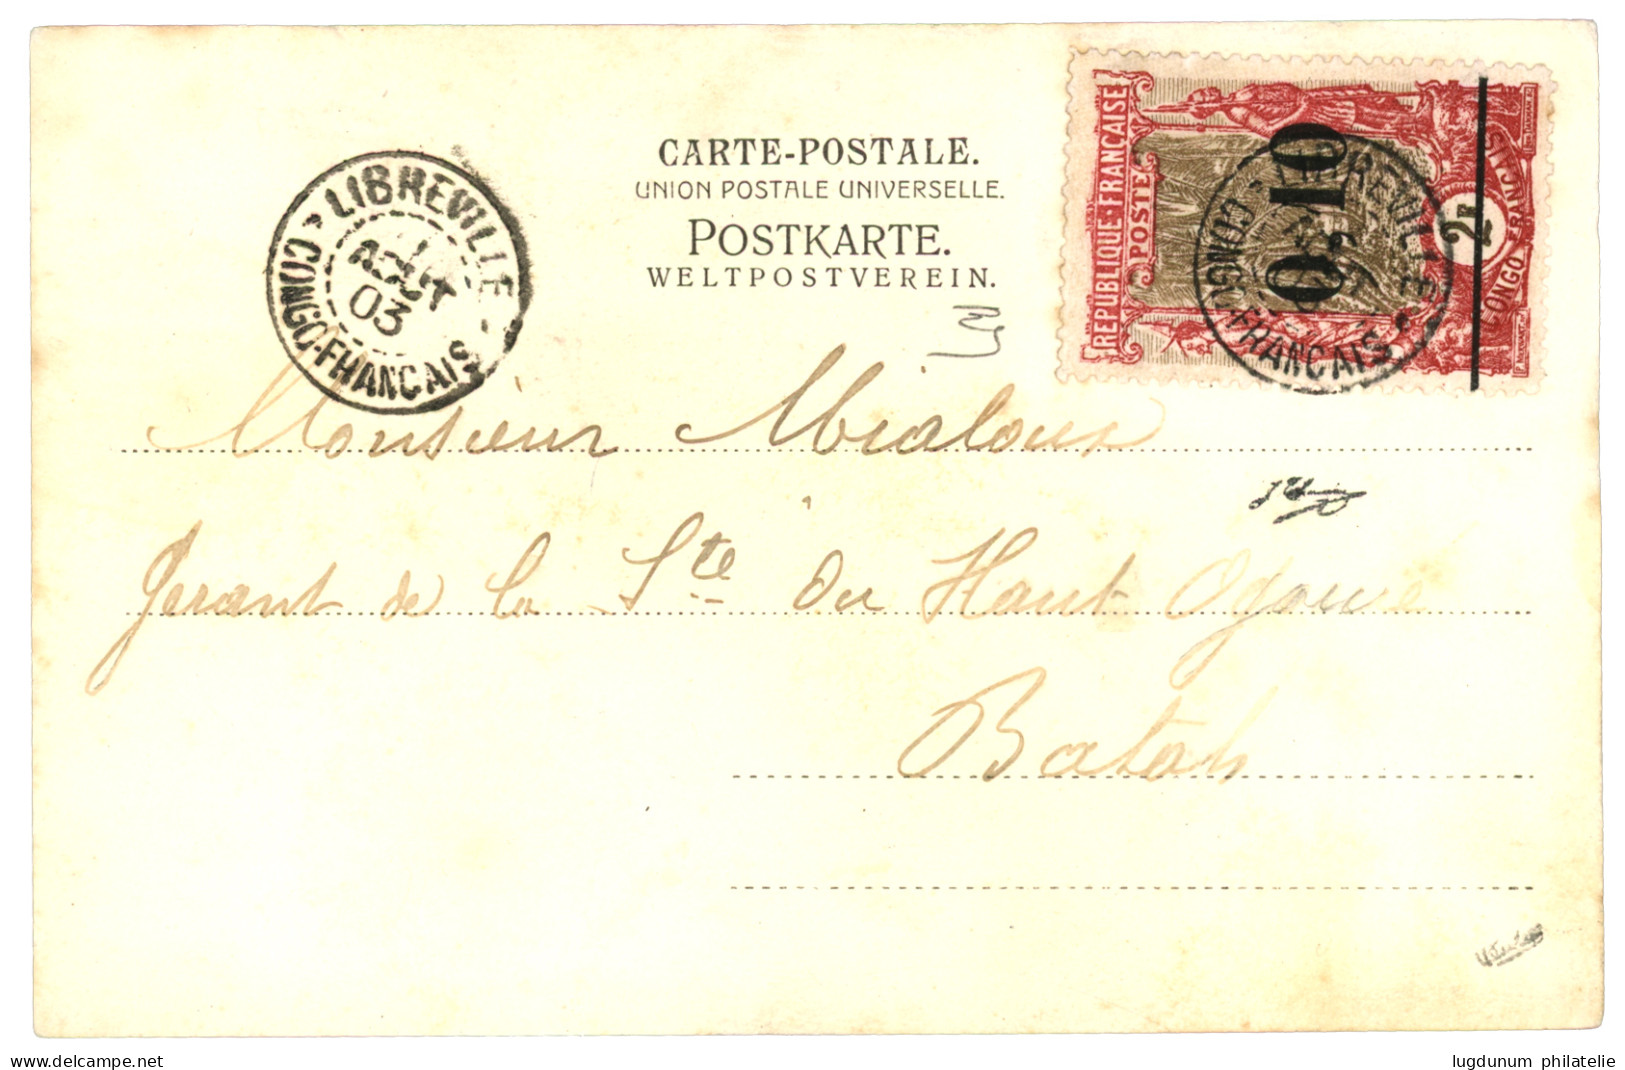 CARTE-POSTALE.
UNION POSTALE UNIVERSELLE.
POSTKARTE.
WELTPOSTVEREIN.
LIBREVILLE
AOUT
03
CONGO-FRANCAIS
RÉPUBLIQUE-FRANÇAISE
POSTES
CONGO FRANÇAIS
2F
0,10
LIBREVILLE
CONGO-FRANCAIS
Monsieur Mialoux
Gerant de la Ste du Haut Ogowe
Batah
www.delcampe.net
lugdunum philatelie